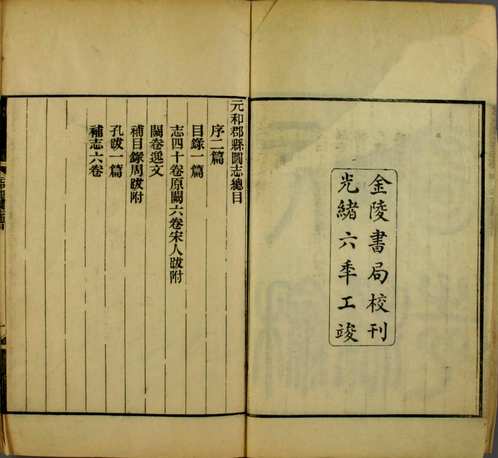 金陵書局校刊
光緒六年工竣
元和郡縣圖志總目
序二篇
目錄一篇
志四十卷原闕六卷宋人跋附
闕卷逸文
補目錄周跋附
孔跋一篇
補志六卷